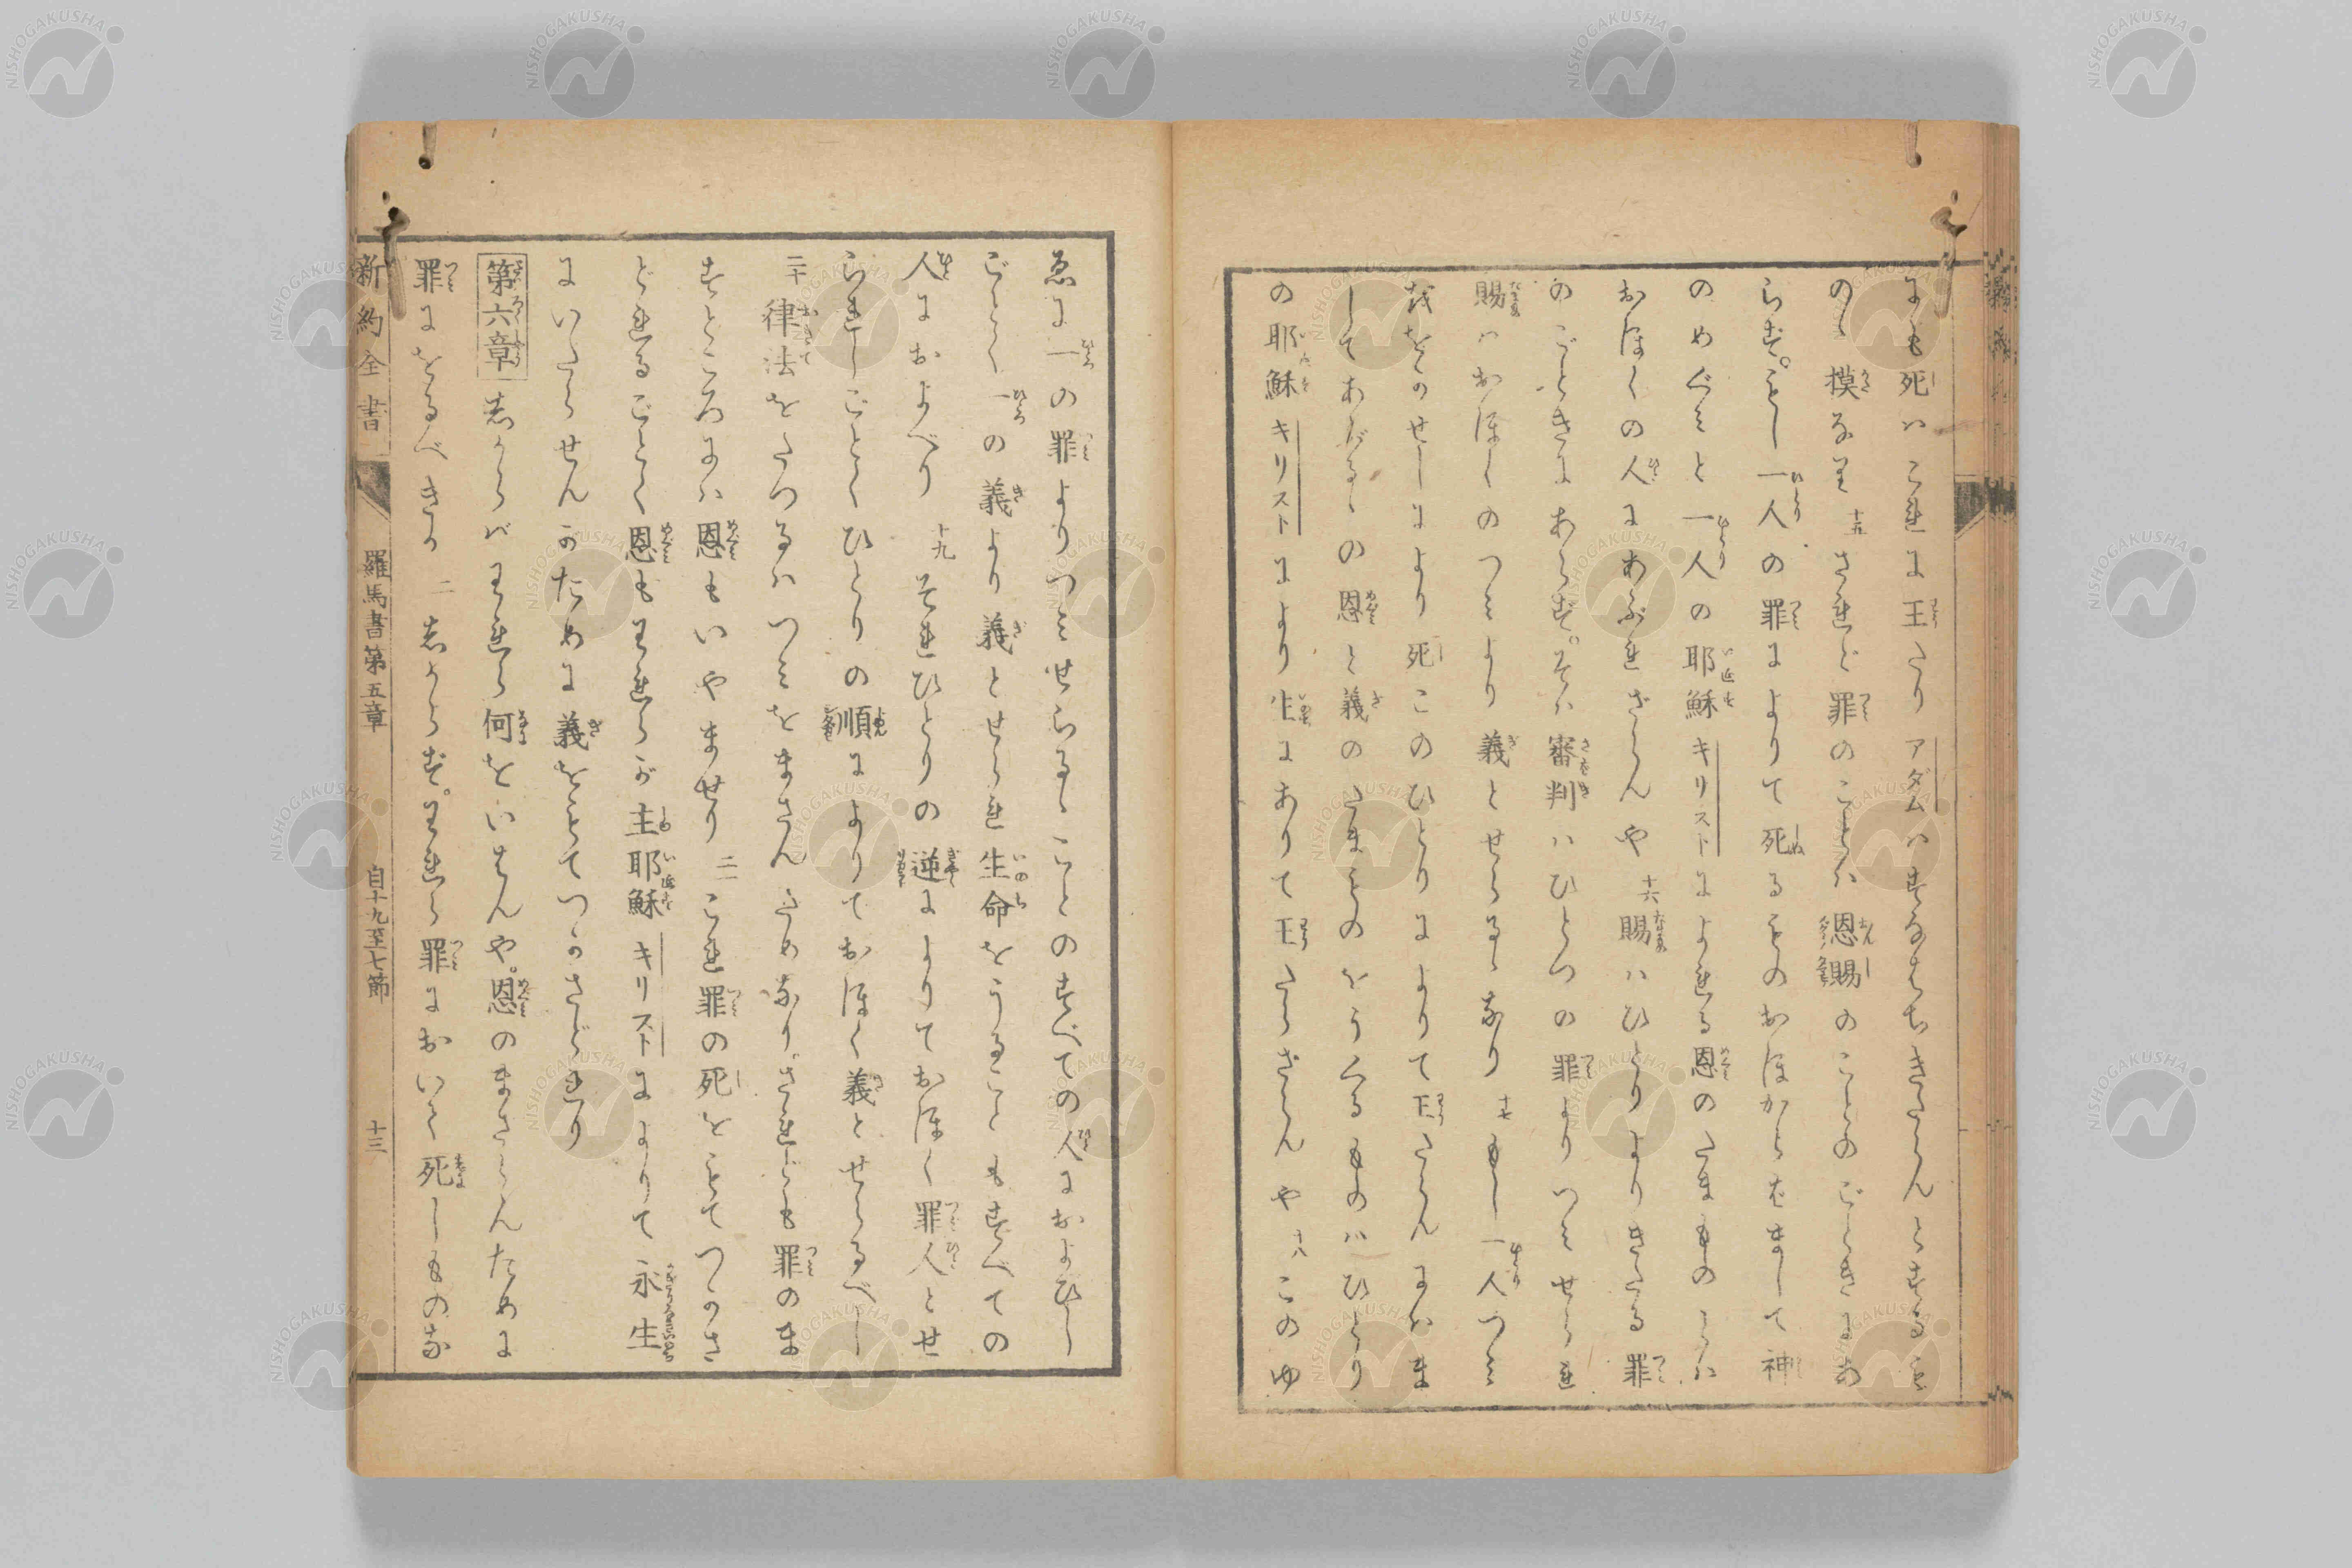 にも死ハこれに王たりアダムハすなはちきたらんとするも
のゝ摸なり十五されど罪のことハ恩賜のことのごときにあ
らず。もし一人の罪によりて死るものおほからバまして神
のめぐみと一人の耶穌キリストによれる恩のたまものハ
おほくの人にあふれざらんや十六賜ハひとりよりきたる罪
のごときにあらず。そハ審判ハひとつの罪よりつみせられ
賜ハおほくのつみより義とせらるゝなり十七もし一人つみ
ををのせしにより死このひとりによりて王たらんにハま
してあふるゝの恩と義のたまものをうくるものハひとり
の耶穌キリストにより生にありて王たらざらんや十八このゆ
ゑに一の罪よりつみせらるゝことのすべての人におよびし
ごとく一の義より義とせられ生命をうることもすべての
人におよべり十九それひとりの逆によりておほく罪人とせ
られしごとくひとりの順によりておほく義とせらるべし
二十律法をたつるハつみをまさんため なり。されども罪のま
すところにハ恩もいやませり二一これ罪の死をもてつかさ
どれるごとく恩もわれらが主耶穌キリストによりて永生
にいたらせんがために義をもてつかさどれり
第六章しからバわれら何をいはんや。恩のまさらんために
罪にをるべきか二しからず。われら罪において死しものな
新約全書 羅馬書第五章 自十九至七節 十三